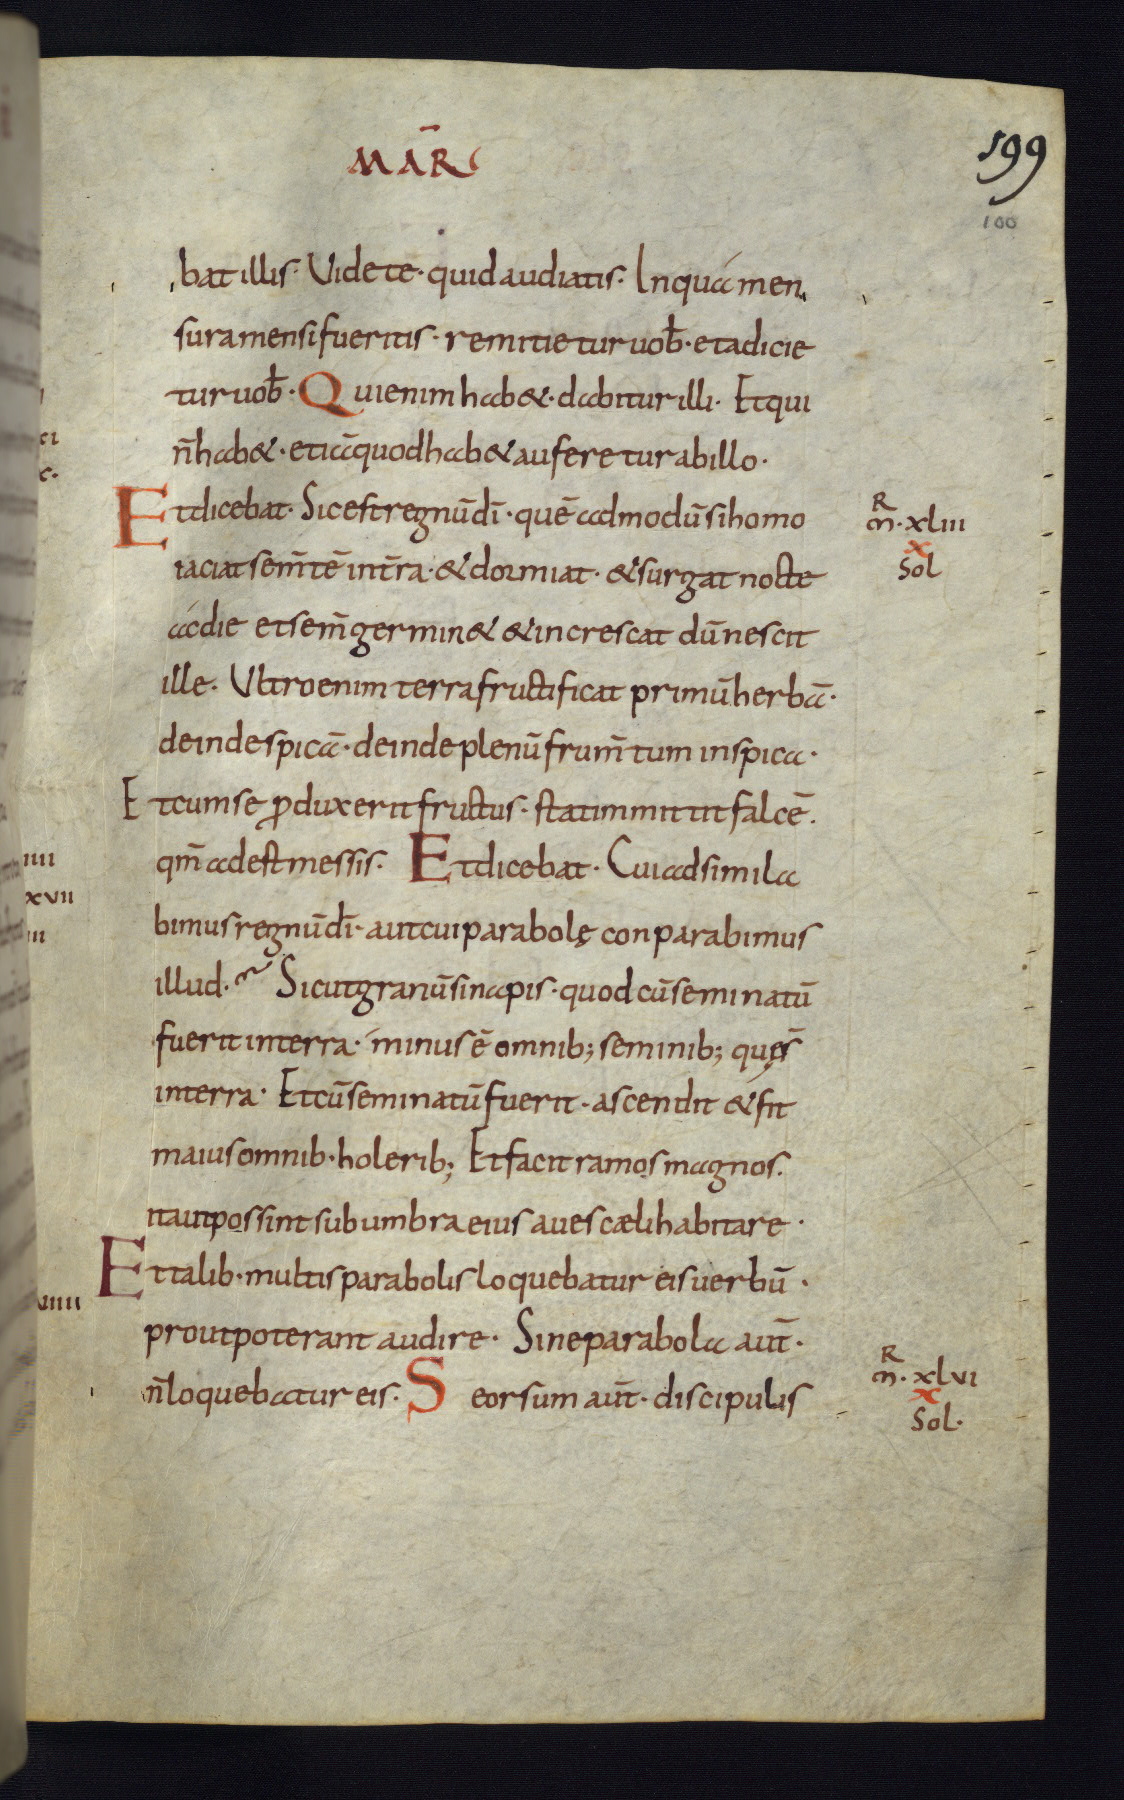 MAR̄
199
100
bat illis. Videte· quid audiatis. In qua men
sura mensi fueritis· remitietur uob̄· et adicie
tur uob̄· Qui enim hab&· dabitur illi. Et qui
n̄ hab&· etiā quod hab& auferetur ab illo·
Et dicebat. Sic est regnū dī· quē admodū si homo
iaciat sem̄tē in t̄ra· & dormiat· & surgat nocte
ac die et sem̄ germin& & increscat dū nescit
ille. Vltro enim terra fructificat primū herbā·
deinde spicā· deinde plenū frum̄tum in spica·
Et cum se ꝓduxerit fructus· statim mittit falcē.
qm̄ adest messis. Et dicebat· Cui adsimila
bimus regnū dī· aut cui parabolę conparabimus
illud· Sicut granū sinapis· quod cū seminatū
fuerit in terra· minus ē omnib; seminib; quęs̄
in terra· Et cū seminatū fuerit· ascendit & fit
maius omnib· holerib; Et facit ramos magnos.
ita ut possint sub umbra eius aues cæli habitare·
Et talib· multis parabolis loquebatur eis uerbū·
prout poterant audire· Sine parabola aut̄·
n̄ loquebatur eis. Seorsum aut̄· discipulis
R
m̄· xliii
x
Sol
R
m̄· xlvi
x
Sol·
iiii
xvii
iii